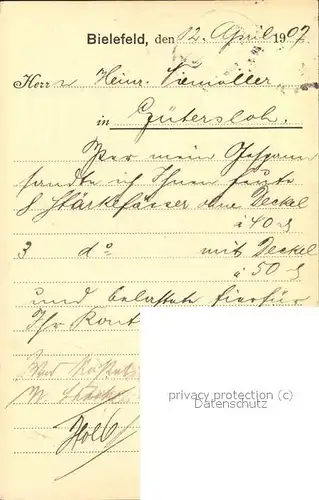 Bielefeld, den 12. April 1907
Herrn Heinr. Siemöller
in Gütersloh.
Per mein Gespann
sandte ich Ihnen heute
8 Stärkefässer ohne Deckel
à 40 ₰
3 do mit Deckel
à 50 ₰
und belastete hierfür
Ihr Kont
privacy protection watermark
Datenschutz